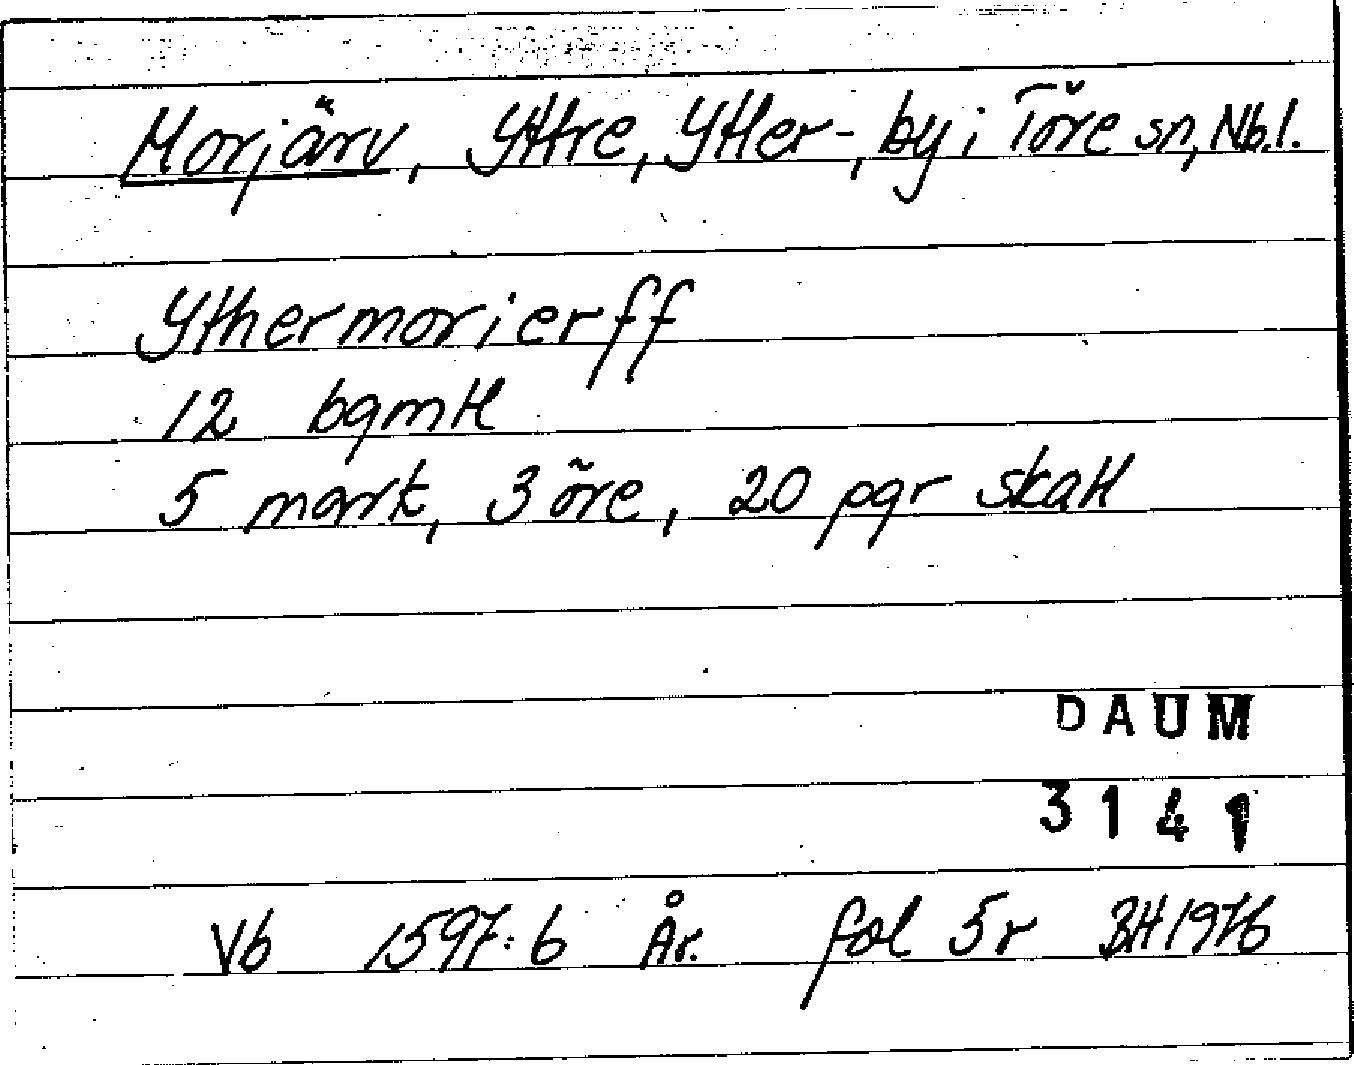 Morjärv, Yttre, Ytter-, by i Töre sn, Nb.l.
Ythermorierff
12 bqmtl
5 mark, 3 öre, 20 pgr skatt
DAUM
3141
Vb 1597:6 År. fol 5r BH 1976